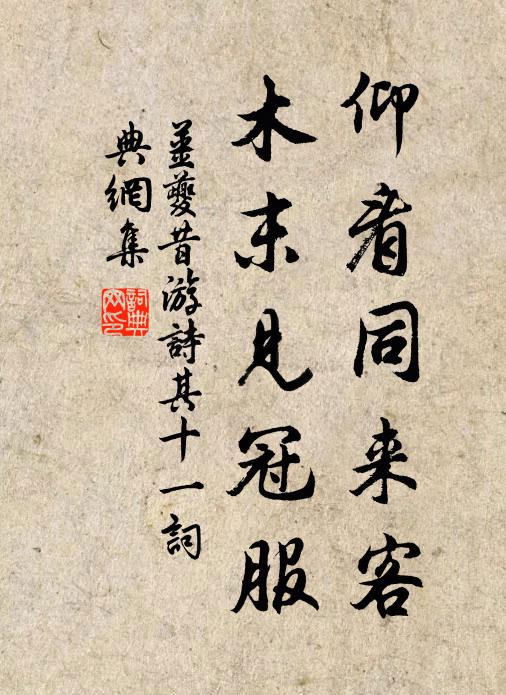 仰看同来客
木末見冠服
姜夔昔游詩其十一詞
典網集
詞典
网印